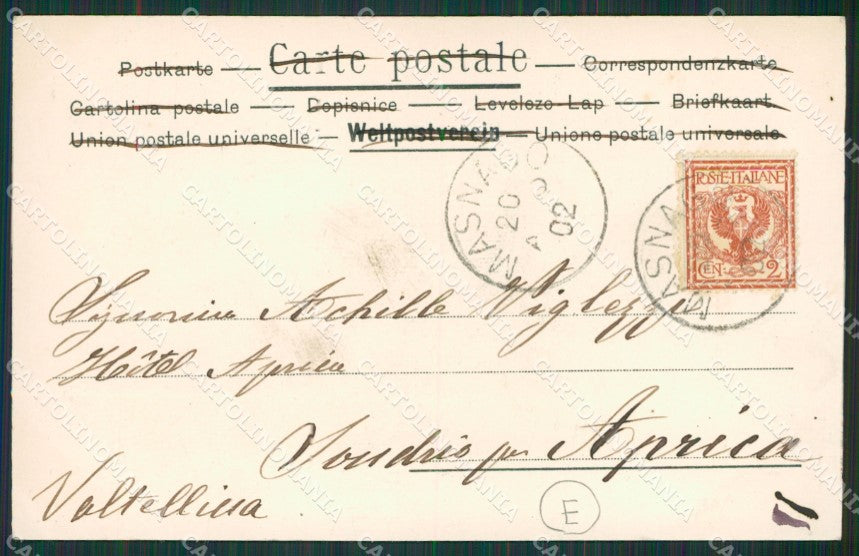 Postkarte — Carte postale — Correspondenzkarte
Cartolina postale — Dopisnice — Levelezo-Lap — Briefkaart
Union postale universelle — Weltpostverein — Unione postale universale
MASNAGO
20
A
02
POSTE·ITALIANE
CEN 2
MASNA
Achille
Hôtel Aprica
Sondrio per Aprica
Valtellina
E
CARTOLINOMANIA